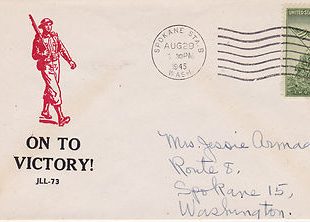 SPOKANE STA. B
AUG 29
1945
WASH.
UNITED STATES
ON TO
VICTORY!
JLL-73
Mrs. Jessie
Route 8,
Spokane 15,
Washington.